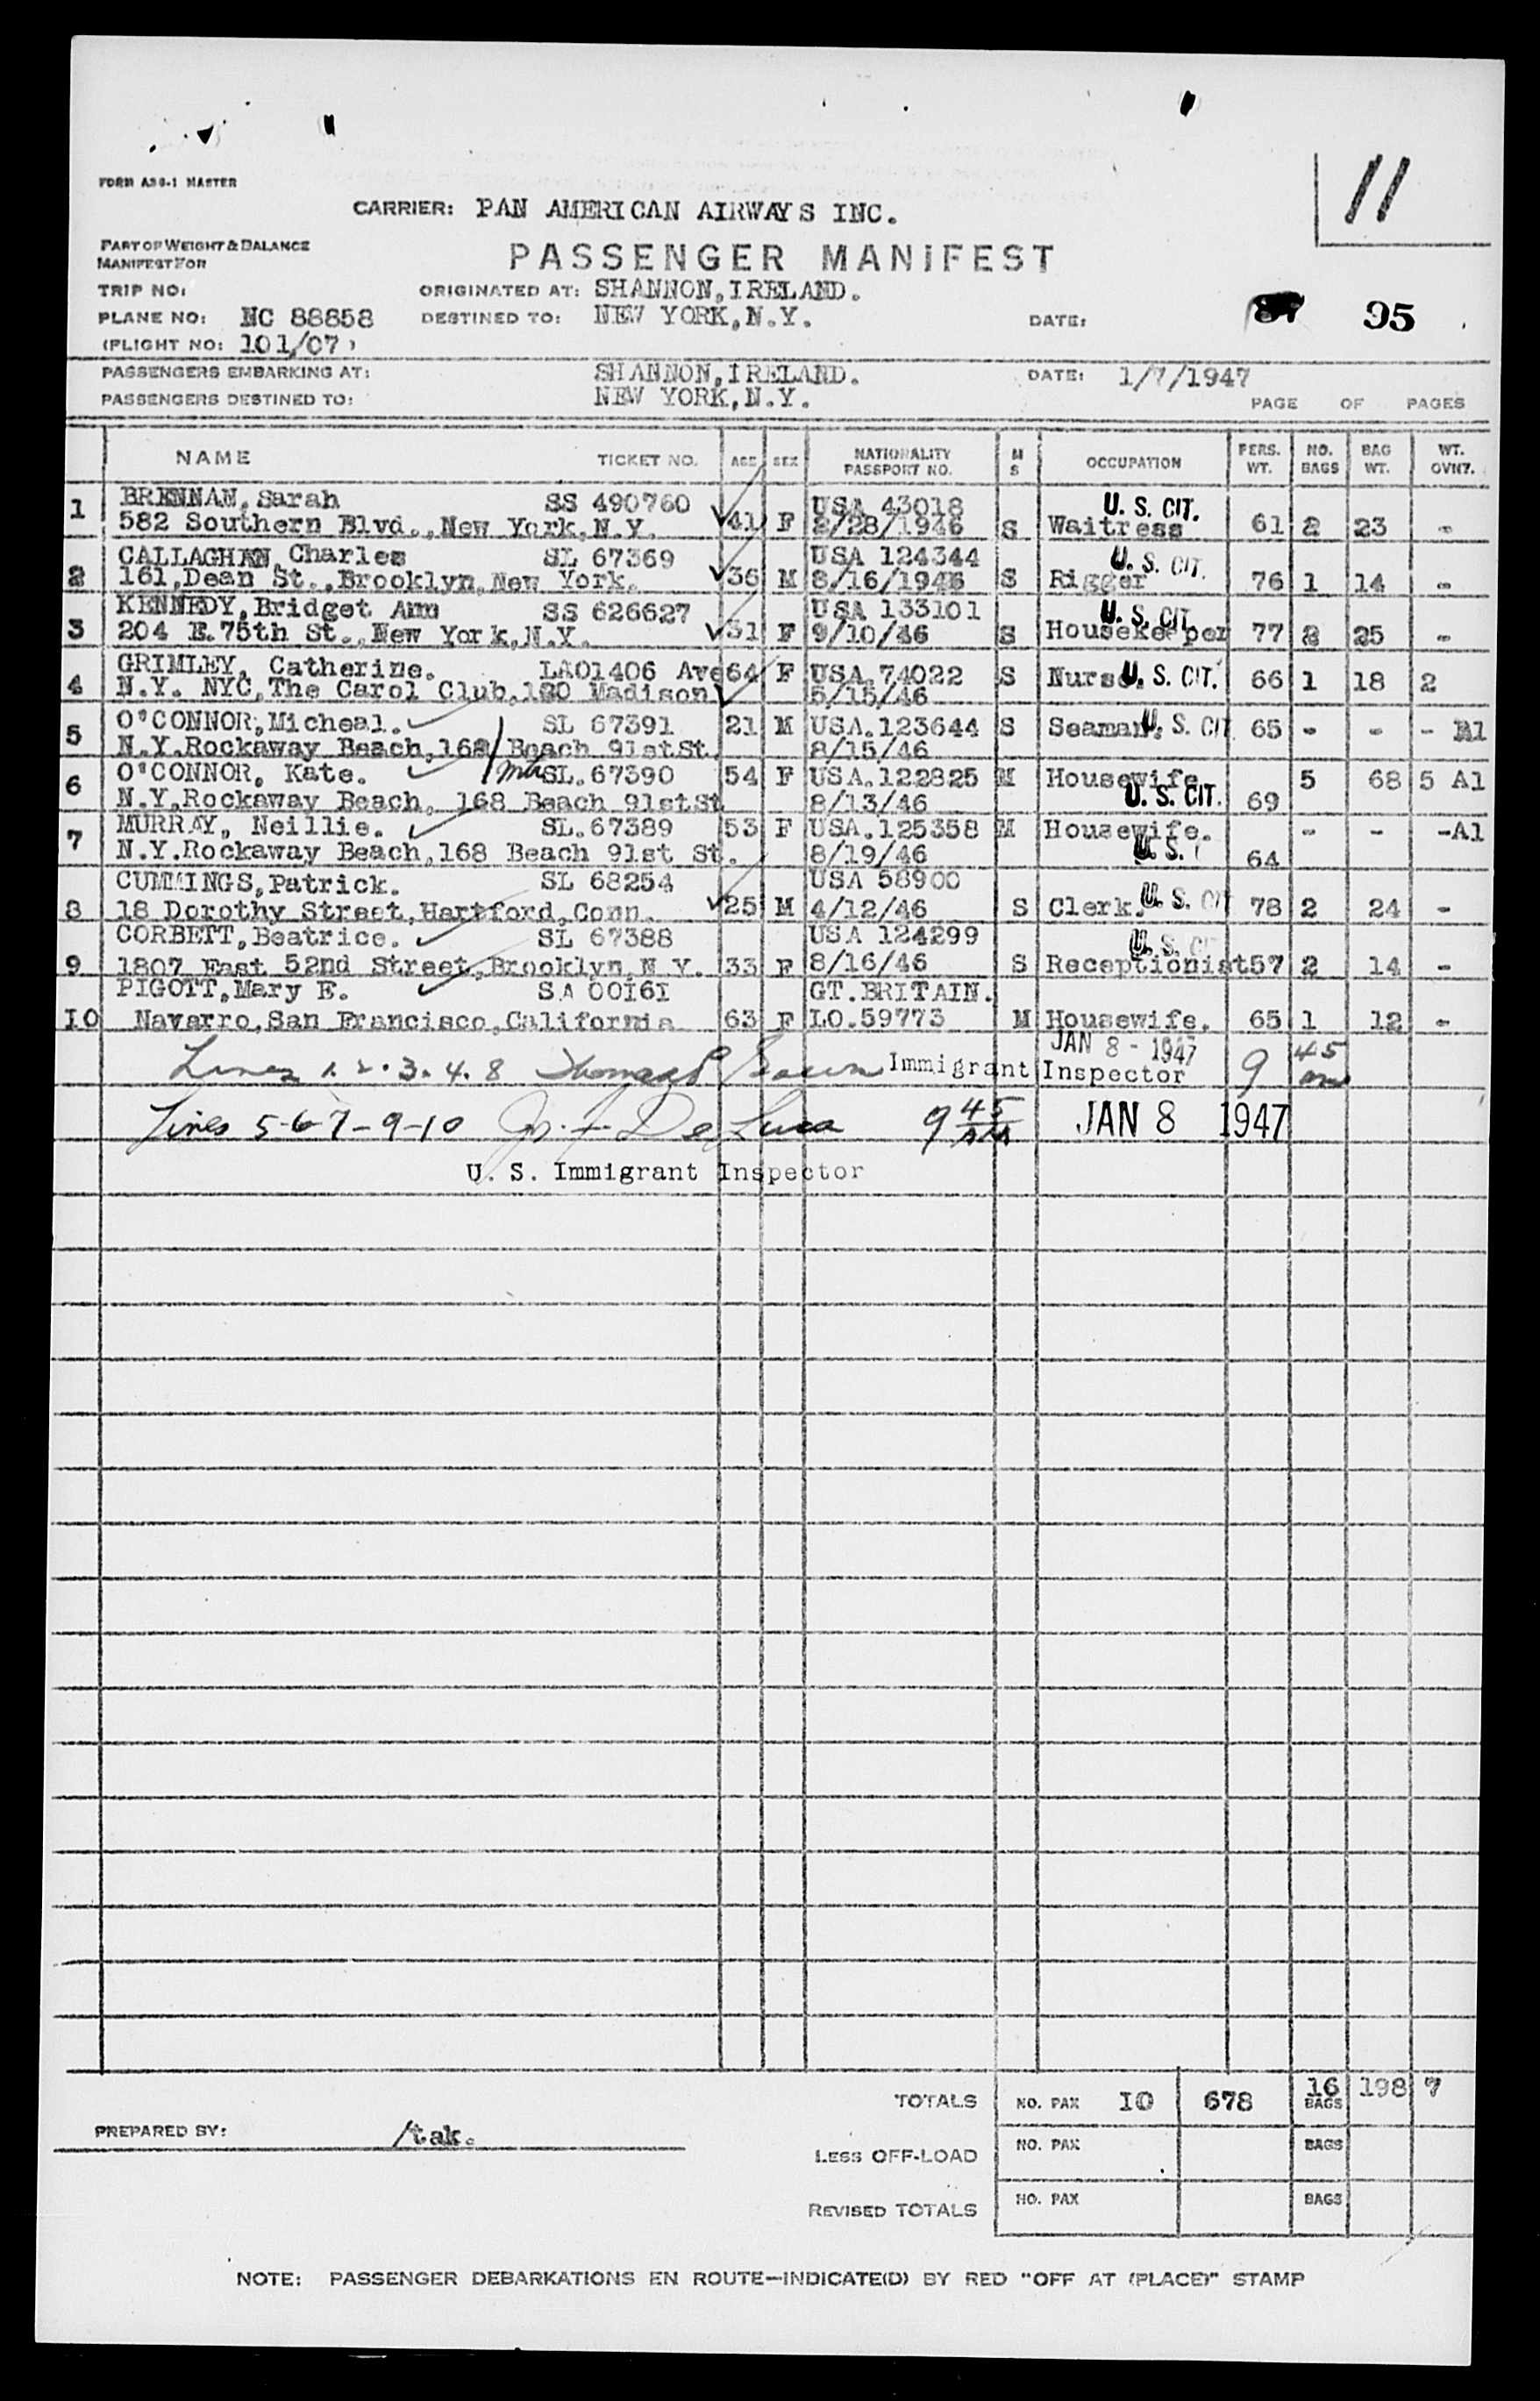 FORM ASG-1 MASTER
11
CARRIER: PAN AMERICAN AIRWAYS INC.
PART OF WEIGHT & BALANCE
MANIFEST FOR
PASSENGER MANIFEST
TRIP NO: ORIGINATED AT: SHANNON, IRELAND.
PLANE NO: NC 88858 DESTINED TO: NEW YORK, N.Y. DATE: 95
(FLIGHT NO: 101/07)
PASSENGERS EMBARKING AT: SHANNON, IRELAND. DATE: 1/7/1947
PASSENGERS DESTINED TO: NEW YORK, N.Y. PAGE OF PAGES
NAME TICKET NO. AGE SEX NATIONALITY PASSPORT NO. M S OCCUPATION PERS. WT. NO. BAGS BAG WT. WT. OVN7.
1 BRENNAN, Sarah SS 490760 USA 43018 U. S. CIT.
582 Southern Blvd., New York, N.Y. 41 F 2/28/1946 S Waitress 61 2 23 -
CALLAGHAN, Charles SL 67369 USA 124344 U. S. CIT.
2 161, Dean St., Brooklyn, New York. 36 M 8/16/1946 S Rigger 76 1 14 -
KENNEDY, Bridget Ann SS 626627 USA 133101 U. S. CIT
3 204 E. 75th St., New York, N.Y. 31 F 9/10/46 S Housekeeper 77 2 25 -
GRIMLEY, Catherine. LA01406 Ave 64 F USA. 74022 S Nurse. U. S. CIT. 66 1 18 2
4 N.Y. NYC, The Carol Club, 120 Madison 5/15/46
O'CONNOR, Micheal. SL 67391 21 M USA. 123644 S Seaman. U. S. CIT 65 - - - A1
5 N.Y. Rockaway Beach, 168 Beach 91st St. 8/15/46
O'CONNOR, Kate. SL. 67390 54 F USA. 122825 M Housewife 5 68 5 A1
6 N.Y. Rockaway Beach, 168 Beach 91st St 8/13/46 U. S. CIT. 69
MURRAY, Neillie. SL. 67389 53 F USA. 125358 M Housewife. - - -A1
7 N.Y. Rockaway Beach, 168 Beach 91st St. 8/19/46 U. S. 64
CUMMINGS, Patrick. SL 68254 USA 58900
8 18 Dorothy Street, Hartford, Conn. 25 M 4/12/46 S Clerk. U. S. CIT 78 2 24 -
CORBETT, Beatrice. SL 67388 USA 124299 U. S. C
9 1807 East 52nd Street, Brooklyn, N Y. 33 F 8/16/46 S Receptionist 57 2 14 -
PIGOTT, Mary E. SA 00161 GT. BRITAIN.
10 Navarro, San Francisco, California 63 F LO. 59773 M Housewife. 65 1 12 -
Lines 1. 2. 3. 4. 8 Immigrant Inspector JAN 8 - 1947 9 45 am
Lines 5-6-7-9-10 De Luca 9 45 AM JAN 8 1947
U. S. Immigrant Inspector
TOTALS NO. PAX 10 678 16 BAGS 198 7
PREPARED BY: /tak.
LESS OFF-LOAD NO. PAX BAGS
REVISED TOTALS NO. PAX BAGS
NOTE: PASSENGER DEBARKATIONS EN ROUTE—INDICATE(D) BY RED "OFF AT (PLACE)" STAMP